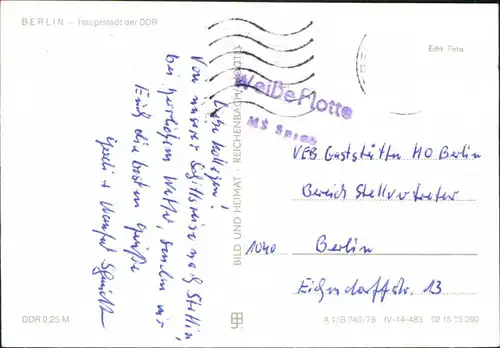 BERLIN – Hauptstadt der DDR
Echt Foto
Weiße Flotte
MS Spree
Liebe Kollegen!
Von unserer Schiffsreise nach Stettin,
bei herrlichem Wetter, senden wir
Euch die besten Grüße
Manfred
BILD UND HEIMAT · REICHENBACH
VEB Gaststätten HO Berlin
Bereich Stellvertreter
1040 Berlin
Eichendorffstr. 13
DDR 0,25 M
A 1/B 740/78 IV-14-483 02 15 15 060